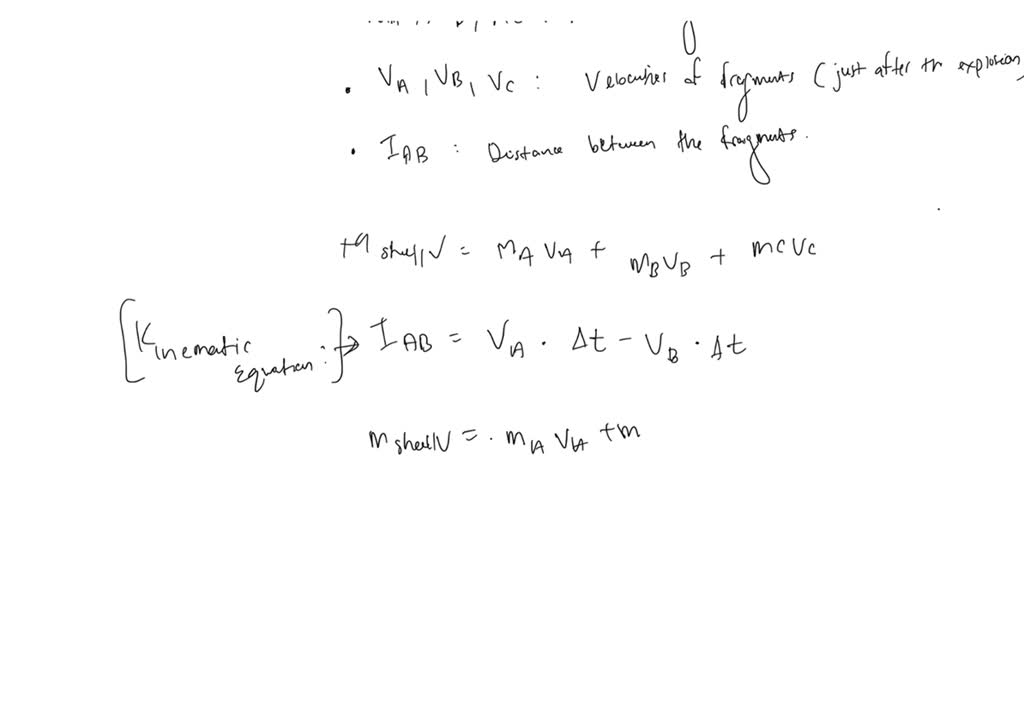 • VA, VB, VC : Velocities of fragments (just after th explosion
• IAB : Distance between the fragments.
shell V = mA VA + mB VB + mC VC
[Kinematic Equation:] → IAB = VA · Δt – VB · Δt
m shell V = · mA VA + m